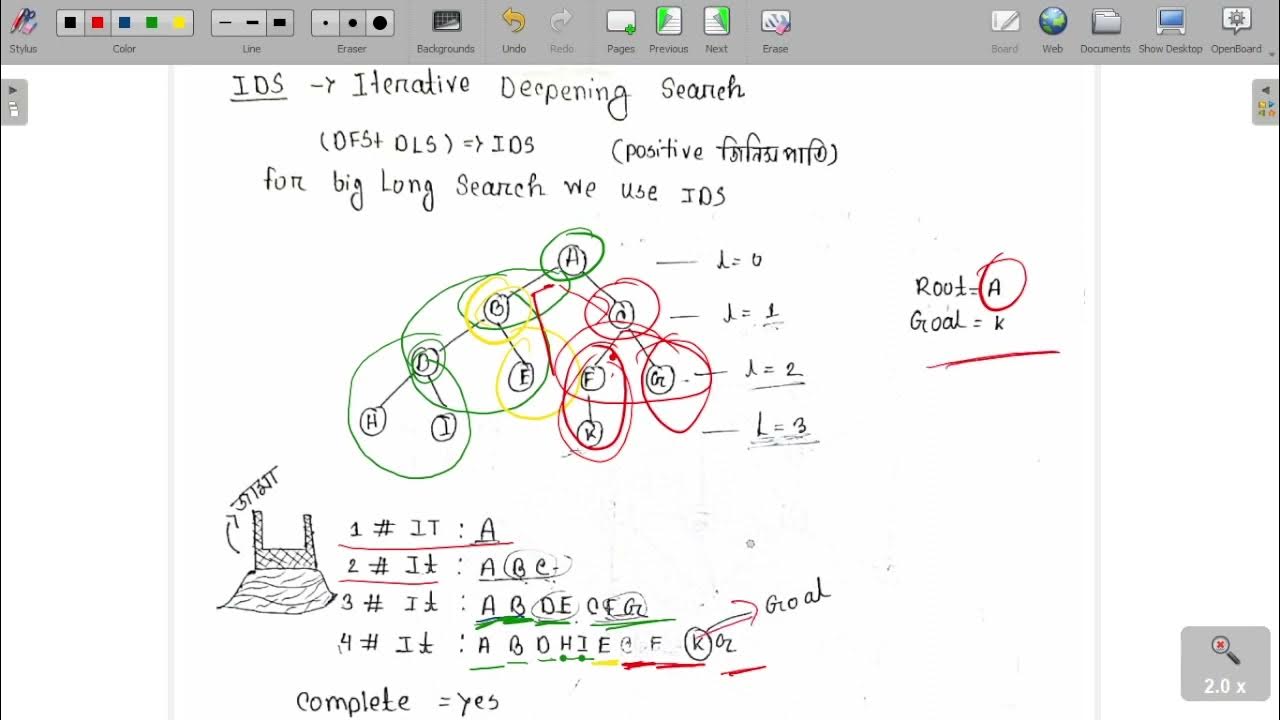 Stylus Color Line Eraser Backgrounds Undo Redo Pages Previous Next Erase Board Web Documents Show Desktop OpenBoard
IDS → Iterative Deepening Search
(DFS+ DLS) => IDS (positive জিনিসপাতি)
for big Long Search we use IDS
A l = 0
B l = 1
D E F G l = 2
H I K L = 3
Root = A
Goal = K
জামা
1 # IT : A
2 # It : A B C
3 # It : A B D E C F G
4 # It : A B D H I E C F K G
Goal
Complete = yes
2.0 x